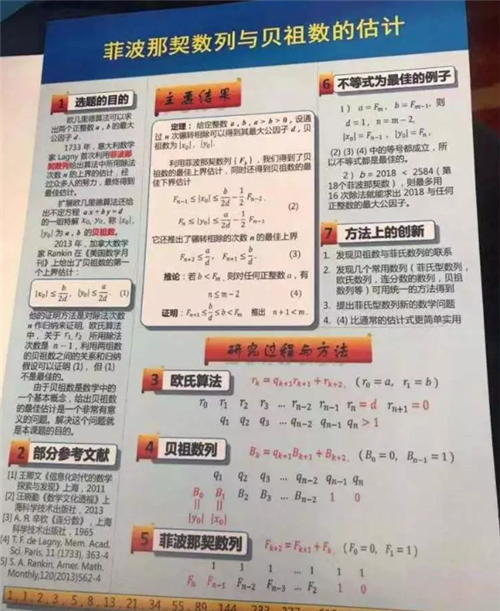 菲波那契数列与贝祖数的估计
1 选题的目的
欧几里德算法可以求
出两个正整数 a, b 的最大
公因子 d。
1733 年，意大利数学
家 Lagny 首次利用菲波那
契数列给出算法中所用除法
次数 n 的上界的估计，经
过众多人的努力，最终得到
最佳估计。
扩展欧几里德算法还给
出不定方程 ax + by = d
的一组特解 x₀, y₀，称 |x₀|,
|y₀| 为 a, b 的贝祖数。
2013 年，加拿大数学
家 Rankin 在《美国数学月
刊》上给出了贝祖数的第一
个上界估计：
|x₀| ≤ b/2d, |y₀| ≤ a/2d (1)
他的证明方法是对除法次数
n 作归纳来证明。欧氏算法
中，关于 r₁, r₂ 所用除法
次数是 n − 1，利用两组数
的贝祖数之间的关系和归纳
假设可以证明 (1)，但 (1)
不是最佳的。
由于贝祖数是数学中的
一个基本概念，给出贝祖数
的最佳估计是一个非常有意
义的问题。解决这个问题就
是本课题的目的。
2 部分参考文献
[1] 王鄂文《信息化时代的数学
探索与发现》上海，2011
[2] 汪晓勤《数学文化透视》上
海科学技术出版社，2013
[3] A. Я. 辛钦《连分数》，上海
科学技术出版社，1965
[4] T. F. de Lagny, Mem. Acad.
Sci. Paris, 11 (1733), 363-4
[5] S. A. Rankin, Amer. Math.
Monthly,120(2013)562-4
主要结果
定理：给定整数 a, b, a > b > 0，设通
过 n 次辗转相除可以得到其最大公因子 d，贝
祖数为 |x₀|, |y₀|.
利用菲波那契数列 {Fₖ}，我们得到了贝
祖数的最佳上界估计，同时还得到贝祖数的最
佳下界估计
Fₙ₋₁ ≤ |x₀| ≤ b/2d − 1/2 Fₙ₋₂,
(2)
Fₙ ≤ |y₀| ≤ a/2d − 1/2 Fₙ₋₁.
它还推出了辗转相除的次数 n 的最佳上界
Fₙ₊₂ ≤ a/d, Fₙ₊₁ ≤ b/d. (3)
推论：若 b < Fₘ，则对任何正整数 a，有
n ≤ m − 2 (4)
证明：Fₙ₊₁ ≤ b/d ≤ b < Fₘ 推出 n + 1 < m.
6 不等式为最佳的例子
1） a = Fₘ, b = Fₘ₋₁, 则
d = 1, n = m − 2,
|x₀| = Fₙ₋₁, |y₀| = Fₙ.
(2) (3) (4) 中的等号都成立，所
以不等式都是最佳的。
2）b = 2018 < 2584 ( 第
18个菲波那契数 )，则最多用
16 次除法就能求出 2018 与任何
正整数的最大公因子。
7 方法上的创新
1. 发现贝祖数与菲氏数列的联系
2. 发现几个常用数列（菲氏型数列，
欧氏数列，连分数的数列，贝祖
数列等）可用统一的方法得到
3. 提出菲氏型数列新的数学问题
4. (4) 比通常的估计式更简单实用
研究过程与方法
3 欧氏算法 rₖ = qₖ₊₁rₖ₊₁ + rₖ₊₂, (r₀ = a, r₁ = b)
r₀ r₁ r₂ r₃ … rₙ₋₂ rₙ₋₁ rₙ = d rₙ₊₁ = 0
q₁ q₂ q₃ … qₙ₋₂ qₙ₋₁ qₙ > 1
4 贝祖数列 Bₖ = qₖ₊₁Bₖ₊₁ + Bₖ₊₂, (Bₙ = 0, Bₙ₋₁ = 1)
q₁ q₂ q₃ … qₙ₋₂ qₙ₋₁ qₙ
B₀ B₁ B₂ B₃ … Bₙ₋₂ 1 0
|| ||
|y₀| |x₀|
5 菲波那契数列 Fₖ₊₂ = Fₖ₊₁ + Fₖ, (F₀ = 0, F₁ = 1)
1 1 1 … 1 1 1
Fₙ Fₙ₋₁ Fₙ₋₂ Fₙ₋₃ … F₂ 1 0
1, 1, 2, 3, 5, 8, 13, 21, 34, 55, 89, 144, 233, 377